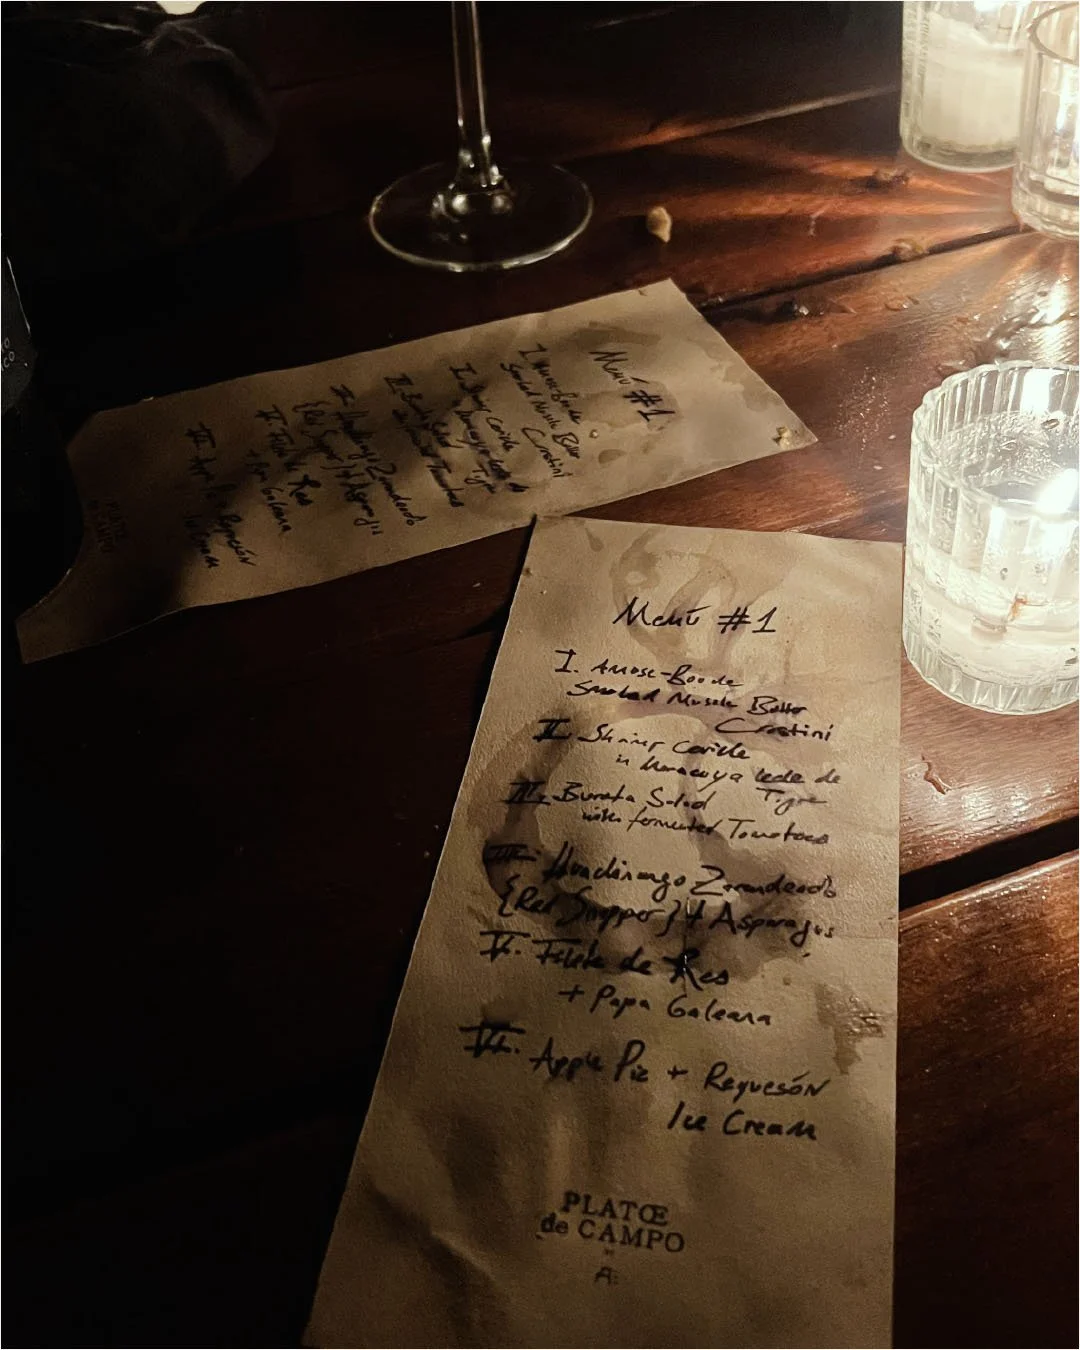 Menú #1
I. Amuse-Bouche
Smoked Mussle Butter
Crostini
II. Shrimp Caviche
in Maracuya leche de
Tigre
III. Burrata Salad
with fermented Tomatoes
IIII. Huachinango Zarandeado
{Red Snapper} + Asparagus
V. Filete de Res
+ Papa Galeana
VI. Apple Pie + Requesón
Ice Cream
PLATŒ
de CAMPO
Menú #1
I. Amuse-Bouche
Smoked Mussle Butter
Crostini
II. Shrimp Caviche
in Maracuya leche de
Tigre
III. Burrata Salad
with fermented Tomatoes
IIII. Huachinango Zarandeado
{Red Snapper} + Asparagus
V. Filete de Res
+ Papa Galeana
VI. Apple Pie + Requesón
Ice Cream
PLATŒ
de CAMPO